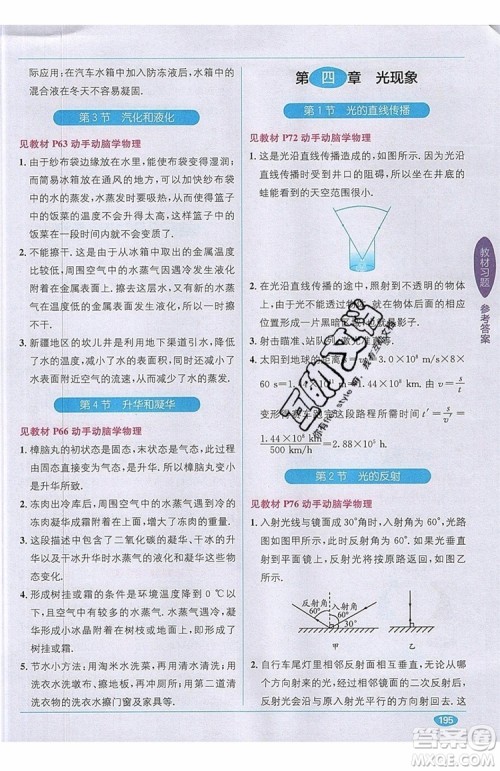 际应用：在汽车水箱中加入防冻液后，水箱中的
液体在冬天不容易凝固.
第3节 汽化和液化
见教材 P63 动手动脑学物理
1. 由于纱布袋边缘放在水里，能使布袋变湿，而
简易冰箱在通风处，加快了纱布袋和篮子中
的水的蒸发，水蒸发吸热，这样篮子中的饭菜
中的热量就被吸收一部分，这样篮子中的饭
菜能保存较长的一段时间.
2. 不能擦干. 这是因为从冰箱中取出的金属温度
比较低，周围空气中的水蒸气因遇冷液化成
小水珠附着在金属表面，由于空气中有大量
的水蒸气，所以擦不干.
3. 新疆地区的坎儿井利用地下渠道引水，减少
了水的蒸发. 而且由于下面温度较低，降低了
水的温度，减慢了水的蒸发，且水蒸发后使
附近空气变湿润，周围空气湿度大，也减慢了
水的蒸发.
第4节 升华和凝华
见教材 P66 动手动脑学物理
1. 樟脑丸的初状态是固态，末状态是气态，由固
态直接变成气态的现象是升华，樟脑丸变小是
升华现象.
2. 冻肉出冷库后，由于冻肉温度低，冻肉周围空
气温度高，周围空气中的水蒸气遇到冷的
冻肉凝华成霜附着在上面，所以冻肉比进冷
库时重.
3. 这段描述中，空气中的二氧化碳会升华、干冰升
华以及水蒸气液化等. 干冰升华时吸热，水蒸
气液化时放热.
4. 形成树挂或霜的条件是环境温度在 0 ℃以下
和空气中有较多的水蒸气，水蒸气在 0 ℃以下
会凝华成小冰粒附着在树枝、电线上，形成
树挂或霜.
5. 节水小方法：用淘米水洗菜，再用清水清洗；用
洗衣水洗抹布、擦地板，再冲厕所；用第二道清
洗衣物的洗衣水擦门窗及家具等.
第四章 光现象
第1节 光的直线传播
见教材 P72 动手动脑学物理
1. 这是光沿直线传播造成的，如图所示. 因为光
沿直线传播时，受到井口的阻碍，所以坐在井底的
蛙能看到的天空范围很小.
2. 光在沿直线传播的途中，照射到不透明的
物体时，被物体挡住，就在物体后面
出现与物体外形相似的黑影.
3. 射击瞄准、站队列、激光准直等.
4. 太阳到地球的距离 s=vt=3.0×10⁸ m/s×
60 s=1.44×10¹¹ m=1.44×10⁸ km. 由 v=s/t
赛车跑完这一段路程的时间 t′=s/v=
1.44×10⁸ km/500 km/h=2.88×10⁵ h.
第2节 光的反射
见教材 P76 动手动脑学物理
1. 入射光线与镜面成 30°，反射角为 60°，光路
图如图甲所示. 当光垂直照射到镜面上时，
光垂直镜面反射，将按原路返回，如图乙
所示.
反射角 60° 入射角 60°
甲
乙
2. 自行车尾灯里相邻反射面的夹角是直角，光
沿着入射的方向相反的方向射出，
后面射来的光会沿着与原入射方向相反的方向射出，
教材习题
参考答案
195
互助文档
答案圈
MXQE.COM